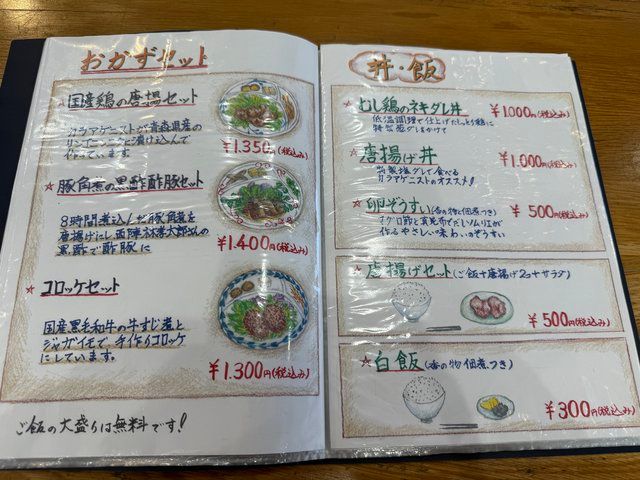 おかずセット
★国産鶏の唐揚セット
カラアゲニストが青森県産の
リンゴ・ニンニクに漬け込んで
作っています。
￥1.350円(税込み)
★豚角煮の黒酢酢豚セット
8時間煮込んだ豚角煮を
唐揚にし西陣林孝太郎さんの
黒酢で酢豚に
￥1.400円(税込み)
★コロッケセット
国産黒毛和牛の牛すじ煮と
ジャガイモで手作りコロッケ
にしています。
￥1.300円(税込み)
ご飯の大盛りは無料です!
丼・飯
★むし鶏のネギダレ丼 ￥1.000円(税込み)
低温調理で仕上げたしっとり鶏に
特製葱ダレをかけて
★唐揚げ丼 ￥1.000円(税込み)
特製塩ダレで食べる
カラアゲニストのオススメ!
★卵ぞうすい(香の物と佃煮つき) ￥500円(税込み)
マグロ節と真昆布でだしソムリエが
作るやさしい味わいのぞうすい
★唐揚げセット(ご飯+唐揚げ2コ+サラダ)
￥500円(税込み)
★白飯(香の物佃煮つき)
￥300円(税込み)